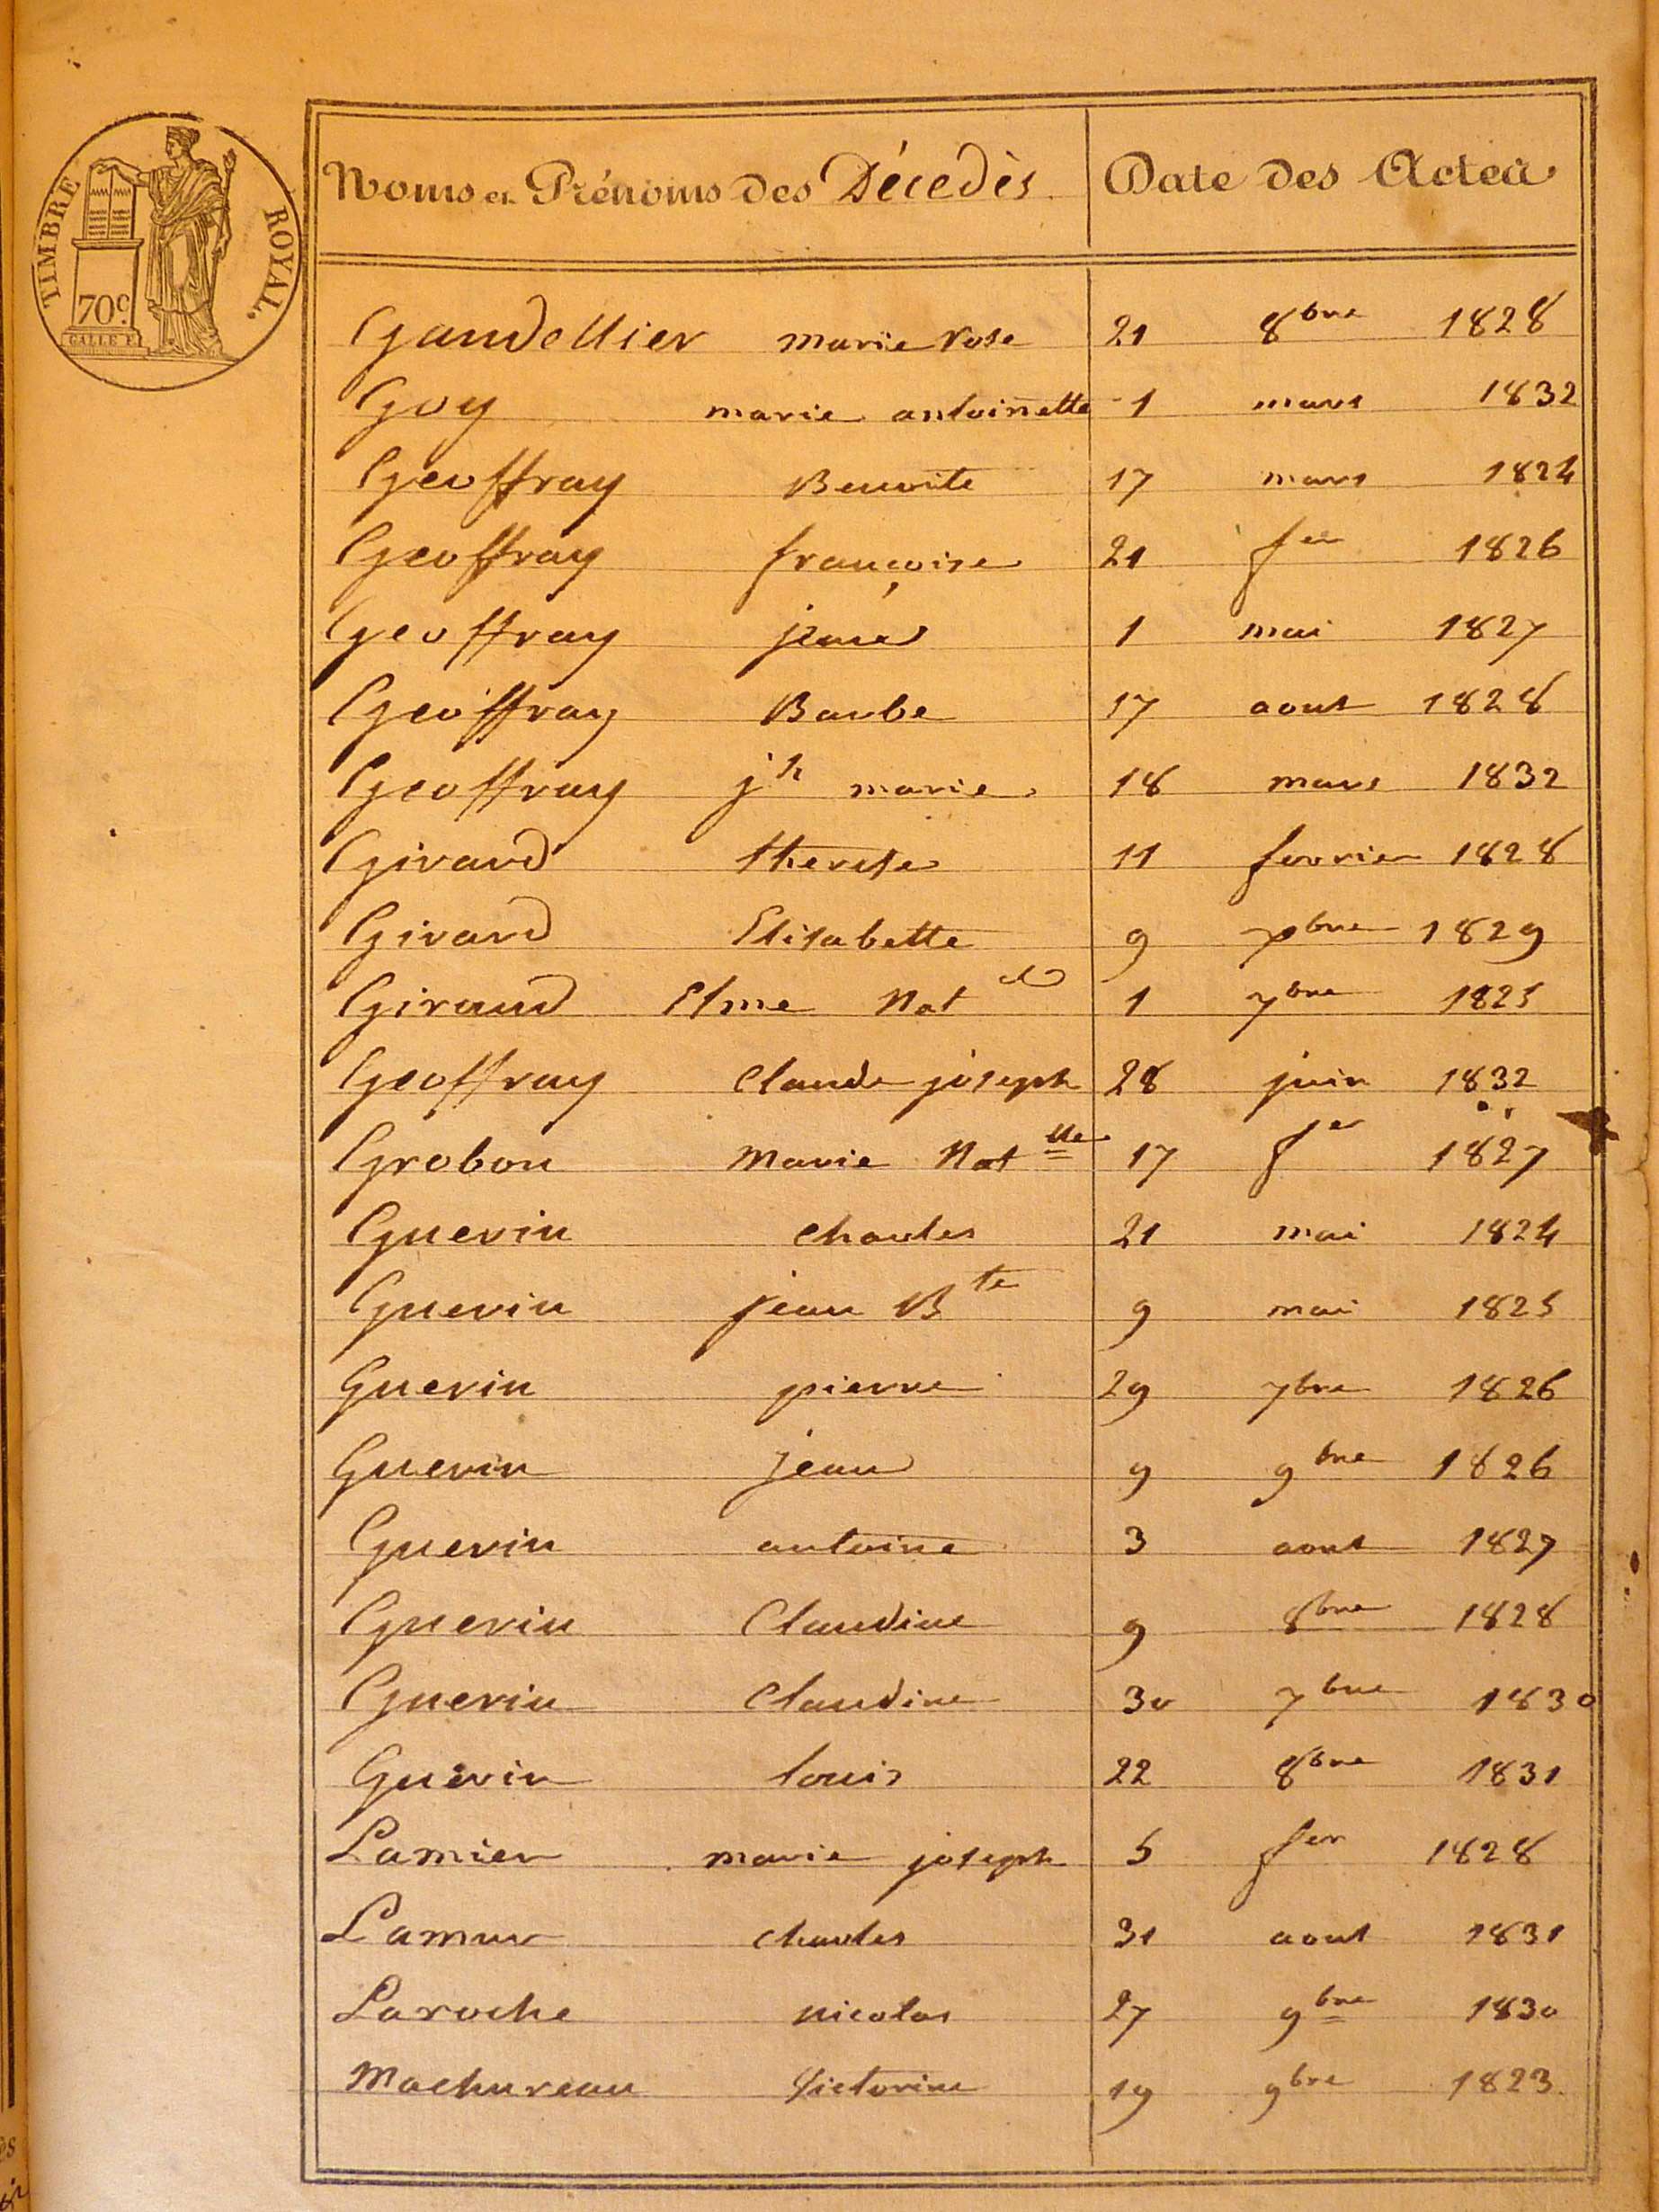 TIMBRE ROYAL.
70c.
GALLE F.
Noms et Prénoms des Décedès Date des Actes
Gandellier marie rose 21 8bre 1828
Goy marie antoinette 1 mars 1832
Geoffray Benoite 17 mars 1824
Geoffray françoise 21 fer 1826
Geoffray jean 1 mai 1827
Geoffray Barbe 17 aout 1828
Geoffray jh marie 18 mars 1832
Girard therese 11 fevrier 1828
Girard Elisabette 9 xbre 1829
Giraud Elme Nat el 1 7bre 1825
Geoffray Claude joseph 28 juin 1832
Grobon Marie Nat lle 17 fer 1827
Guerin Charles 21 mai 1824
Guerin jean Bte 9 mai 1825
Guerin pierre 29 7bre 1826
Guerin jean 9 9bre 1826
Guerin antoine 3 aout 1827
Guerin Claudine 9 8bre 1828
Guerin Claudine 30 7bre 1830
Guerin louis 22 8bre 1831
Lamier marie joseph 5 fer 1828
Lamur charles 31 aout 1831
Laroche nicolas 27 9bre 1830
Machureau Victorine 19 9bre 1823